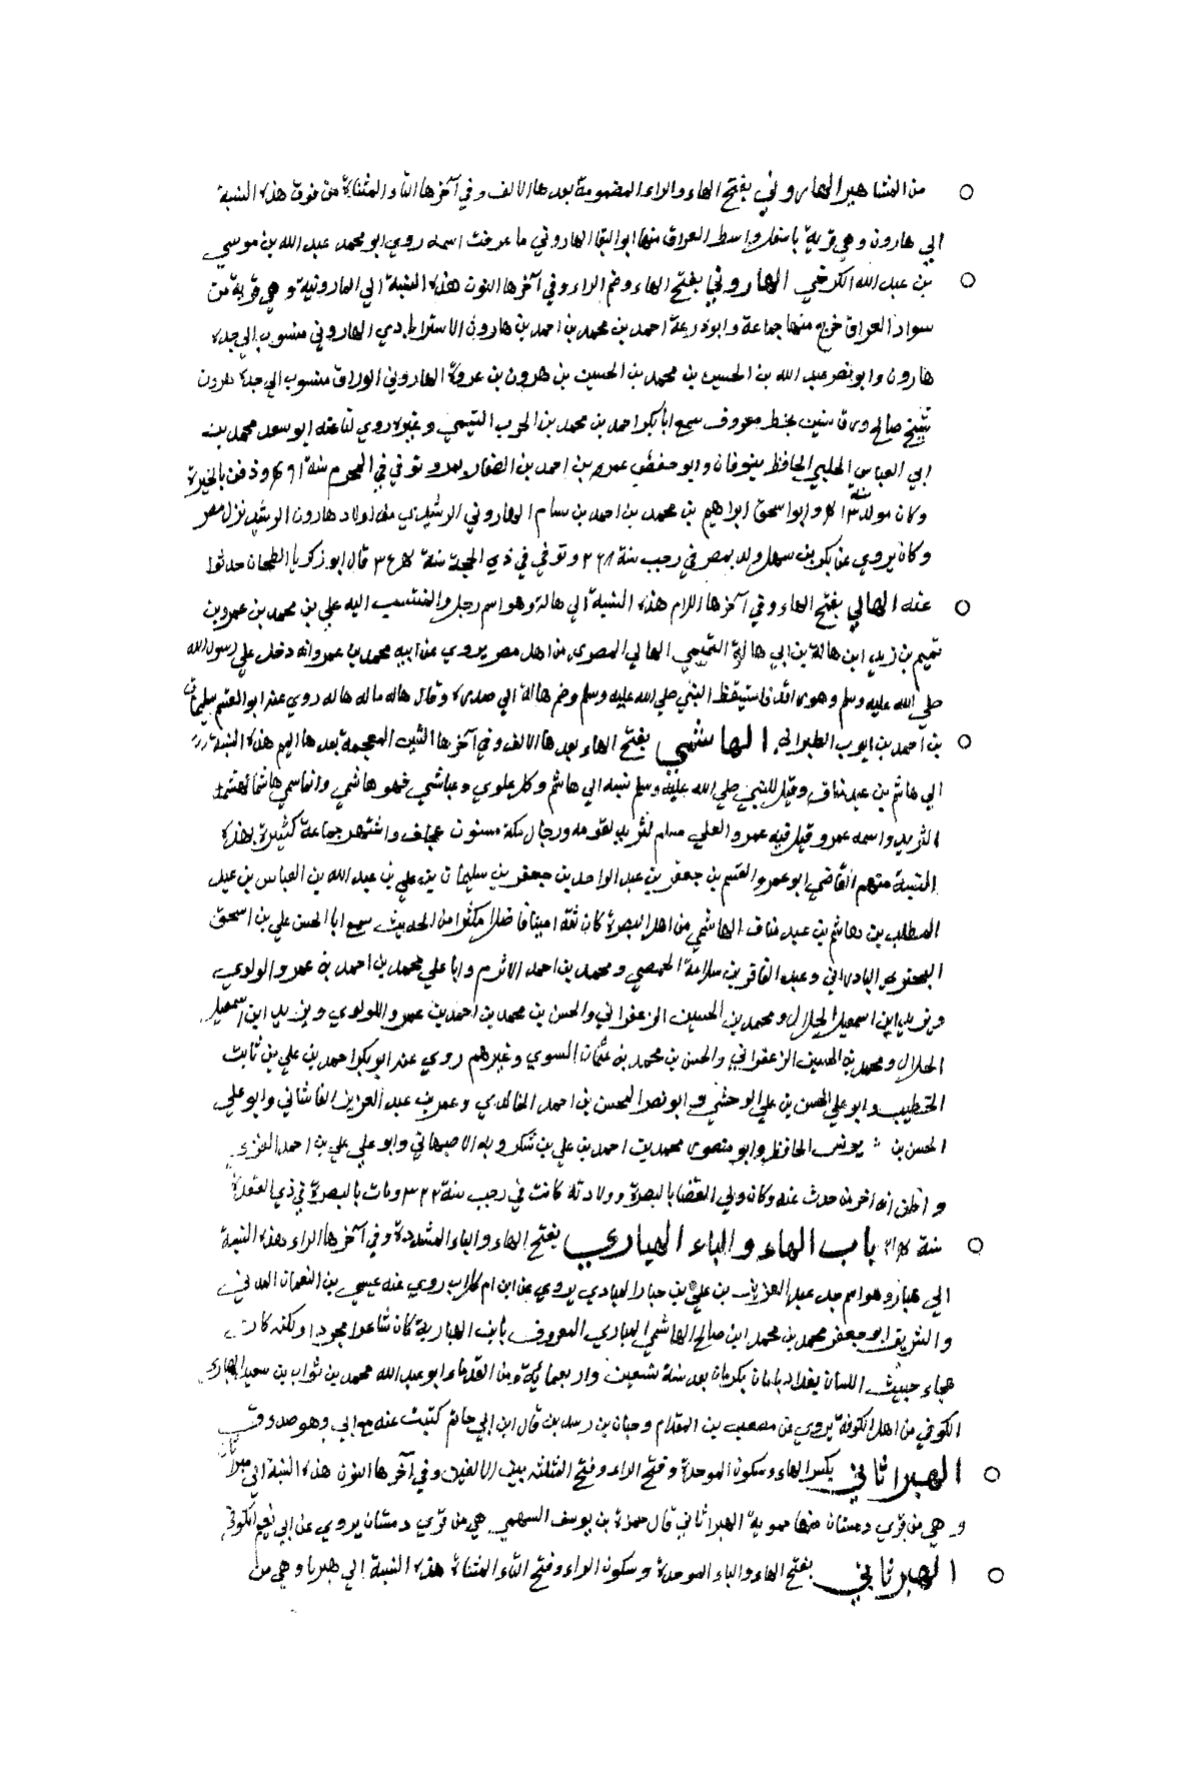 من المشاهير الهاروني بفتح الهاء والراء المضمومة بعدها الالف وفي آخرها التاء والمثناة من فوق هذه النسبة
الي هارون وهي قرية باسفل واسط العراق منها ابو البقا الهاروني ما عرفت اسمه روي ابو محمد عبد الله بن موسي
بن عبد الله الكرخي الهاروني بفتح الهاء وضم الراء وفي آخرها النون هذه النسبة الي الهارونية وهي قرية من
سواد العراق خرج منها جماعة وابو زرعة احمد بن محمد بن احمد بن هارون الاسترابادي الهاروني منسوب الي جده
هارون وابو نصر عبد الله بن الحسين بن محمد بن الحسين بن هرون بن عروة الهاروني الوراق منسوب الي جده هرون
شيخ صالح سمع ابا بكر احمد بن محمد بن الحرب التميمي وغيره روي لنا عنه ابو سعد محمد بن
ابي العباس الخليلي الحافظ بنوقان وابو حفص عمر بن احمد بن الصفار بمرو توفي في المحرم سنة ودفن بالحيرة
وكان مولده سنة وابو اسحق ابراهيم بن محمد بن احمد بن سام الهاروني الرشيدي من اولاد هارون الرشيد نزل مصر
وكان يروي عن بكر بن سهل ولد بمصر في رجب سنة ٢٦٨ وتوفي في ذي الحجة سنة قال ابو زكريا الطحان حدثونا
عنه الهالي بفتح الهاء وفي آخرها اللام هذه النسبة الي هالة وهو اسم رجل والمنتسب اليه علي بن محمد بن عمرو بن
تميم بن زيد ابن هالة بن ابي هالة التميمي الهالي المصري من اهل مصر يروي عن ابيه محمد بن عمرو انه دخل علي رسول الله
صلي الله عليه وسلم وهو راقد فاستيقظ النبي صلي الله عليه وسلم وضم هالة الي صدره وقال هاله هاله هاله روي عنه ابو القسم سليمان
بن احمد بن ايوب الطبراني الهاشمي بفتح الهاء بعدها الالف وفي آخرها الشين المعجمة بعدها الميم هذه النسبة
الي هاشم بن عبد مناف وقيل للنبي صلي الله عليه وسلم نسبه الي هاشم وكل علوي وعباسي فهو هاشمي وانما سمي هاشما لهشمه
الثريد واسمه عمرو قيل فيه عمرو العلي هشم الثريد لقومه ورجال مكة مسنتون عجاف واشتهر جماعة كثيرة بهذه
النسبة منهم القاضي ابو عمرو القسم بن جعفر بن عبد الواحد بن جعفر بن سليمان بن علي بن عبد الله بن العباس بن عبد
المطلب بن هاشم بن عبد مناف الهاشمي من اهل البصرة كان ثقة امينا فاضلا مكثرا من الحديث سمع ابا الحسن علي بن اسحق
البختري المادراني وعبد الغافر بن سلامة الحمصي ومحمد بن احمد الاثرم وابا علي محمد بن احمد بن عمرو اللولوي
ويزيد ابن اسمعيل الخلال ومحمد بن الحسين الزعفراني والحسن بن محمد بن احمد بن عمرو اللولوي ويزيد ابن اسمعيل
الخلال ومحمد بن الحسين الزعفراني والحسن بن محمد بن عثمان النسوي وغيرهم روي عنه ابو بكر احمد بن علي بن ثابت
الخطيب وابو علي الحسن بن علي الوحشي وابو نصر الحسن بن احمد الخالدي وعمر بن عبد العزيز الفاشاني وابو علي
الحسن بن يونس الحافظ وابو منصور محمد بن احمد بن علي بن شكرويه الاصبهاني وابو علي علي بن احمد التستري
واظن انه اخر من حدث عنه وكان ولي القضا بالبصرة وولادته كانت في رجب سنة ٣٢٢ ومات بالبصرة في ذي القعدة
سنة باب الهاء والباء الهباري بفتح الهاء والباء المشددة وفي آخرها الراء هذه النسبة
الي هبار وهو اسم جد عبد العزيز بن علي بن هبار الهباري يروي عن ابن ام كلاب روي عنه عيسي بن النعمان
والشريف ابو جعفر محمد بن محمد ابن صالح الهاشمي الهباري المعروف بابن الهبارية كان شاعرا مجودا ولكنه كان
هجاء خبيث اللسان بغداد مات بكرمان بعد سنة تسعين واربعمائة ومن القدماء ابو عبد الله محمد بن ثواب بن سعيد الهباري
الكوفي من اهل الكوفة يروي عن مصعب بن المقدام وحبان بن قال ابن ابي حاتم كتبت عنه مع ابي وهو صدوق
الهبراثاني بكسر الهاء وسكون الموحدة وفتح الراء وفتح المثلثة بين الالفين وفي آخرها النون هذه النسبة الي هبراثان
وهي من قري دهستان منها حمويه الهبراثاني قال حمزة بن يوسف السهمي هي من قري دهستان يروي عن ابي نعيم الكوفي
الهبرتابي بفتح الهاء والباء الموحدة وسكون الراء وفتح التاء المثناة هذه النسبة الي هبرتا وهي من